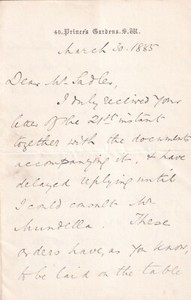 68. Prince's Gardens. S.W.
March 30. 1885
Dear Mr Sadler,
I duly received your
letter of the 21st instant
together with the documents
accompanying it, & have
delayed replying until
I could consult Mr
Mundella. These
orders have, as you know,
to be laid on the table